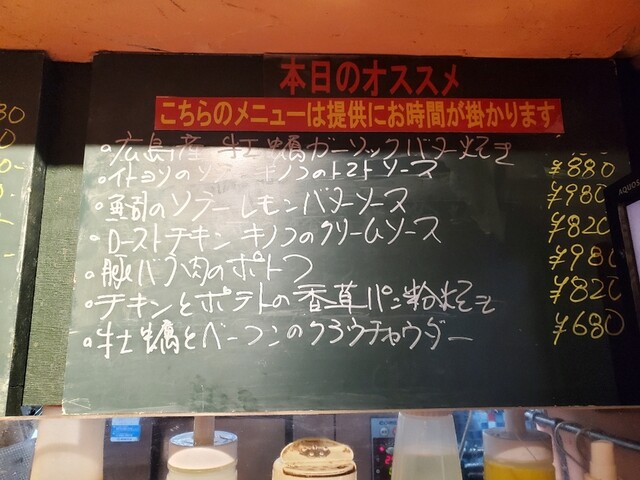 本日のオススメ
こちらのメニューは提供にお時間が掛かります
・広島産 牡蠣ガーリックバター焼き
・イトヨリのソテー キノコのトマトソース ¥880
・魚介のソテー レモンバターソース ¥980
・ローストチキン キノコのクリームソース ¥820
・豚バラ肉のポトフ ¥980
・チキンとポテトの香草パン粉焼き ¥820
・牡蠣とベーコンのクラウチャウダー ¥680
AQUOS